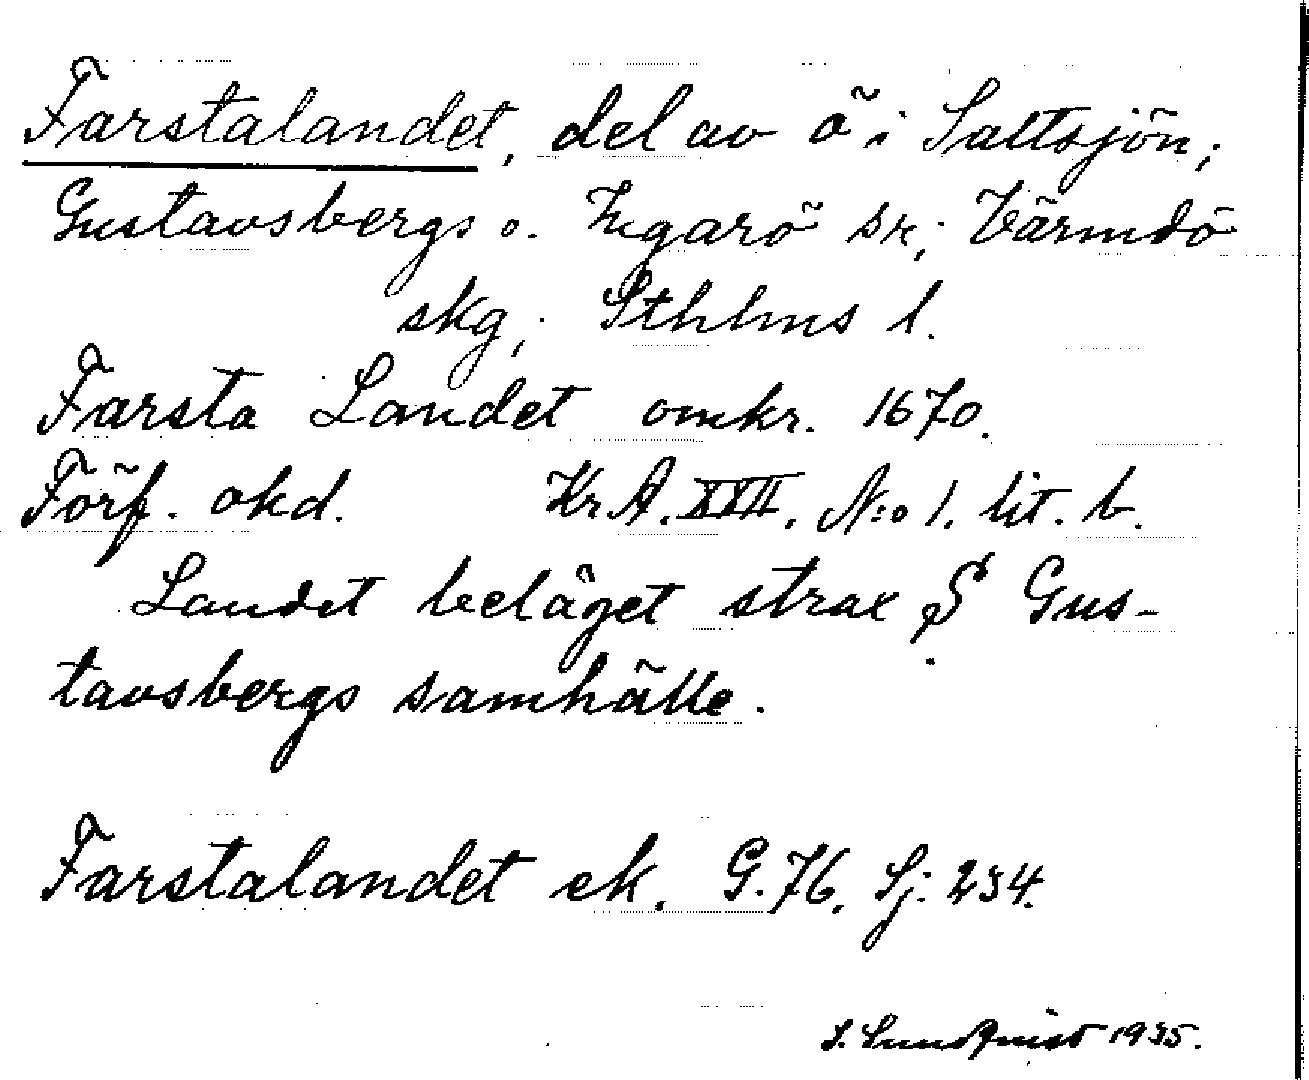 Farstalandet, del av ö i Saltsjön;
Gustavsbergs o. Ingarö sr; Värmdö
skg; Sthlms l.
Farsta Landet omkr. 1670.
Förf. okd. Kr A. XXII. N:o 1. lit. b.
Landet beläget strax S Gus-
tavsbergs samhälle.
Farstalandet ek. G. 76. Sj: 234.
S. Lundqvist 1935.